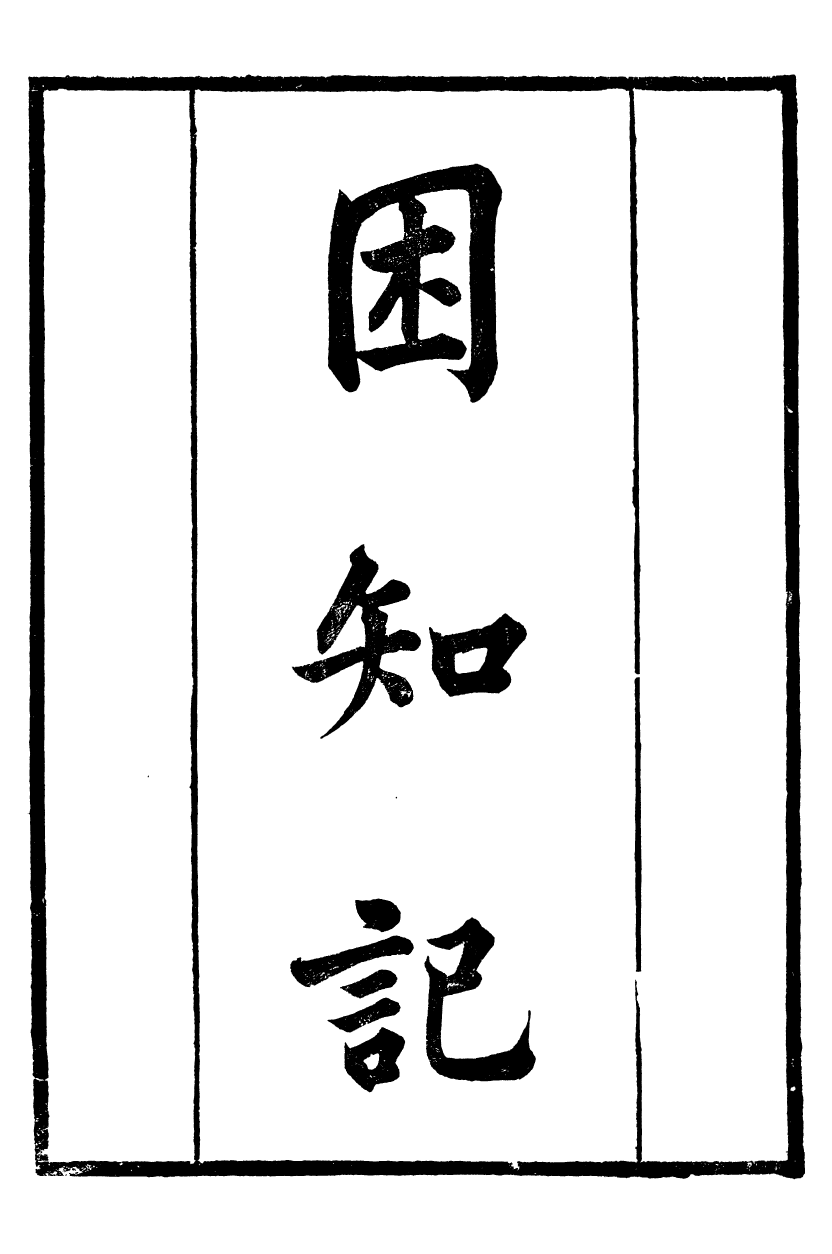 困知記